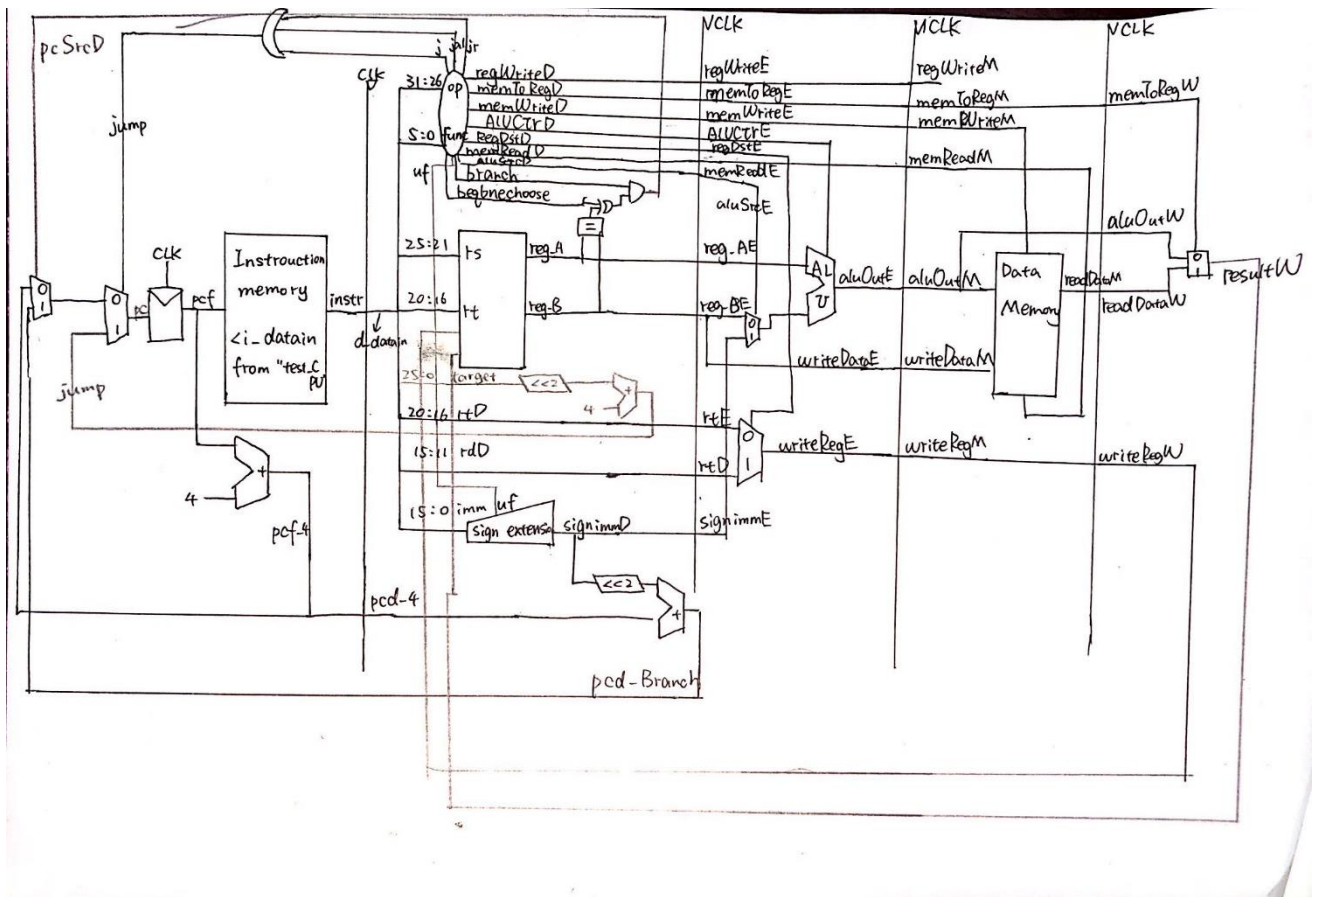 pcSrcD
jump
j jal jr
CLK
VCLK
VCLK
VCLK
31:26
op
func
5:0
uf
regWriteD
memToRegD
memWriteD
ALUCtrD
RegDstD
memReadD
aluSrcD
branch
beqbnechoose
regWriteE
memToRegE
memWriteE
ALUCtrE
regDstE
memReadE
aluSrcE
regWriteM
memToRegM
memWriteM
memReadM
memToRegW
=
0
1
0
1
CLK
pc
pcf
Instrouction
memory
<i_datain
from "test_C
PU"
instr
d_datain
25:21
rs
20:16
rt
reg_A
reg_B
reg_AE
reg_BE
0
1
AL
U
aluOutE
aluOutM
aluOutW
Data
Memory
readDataM
readDataW
0
1
resultW
writeDataE
writeDataM
jump
25:0
target
<<2
4
+
20:16 rtD
rtE
15:11 rdD
rtD
0
1
writeRegE
writeRegM
writeRegW
4
+
pcf_4
15:0 imm
uf
sign extens
signimmD
signimmE
<<2
+
pcd-4
pcd-Branch